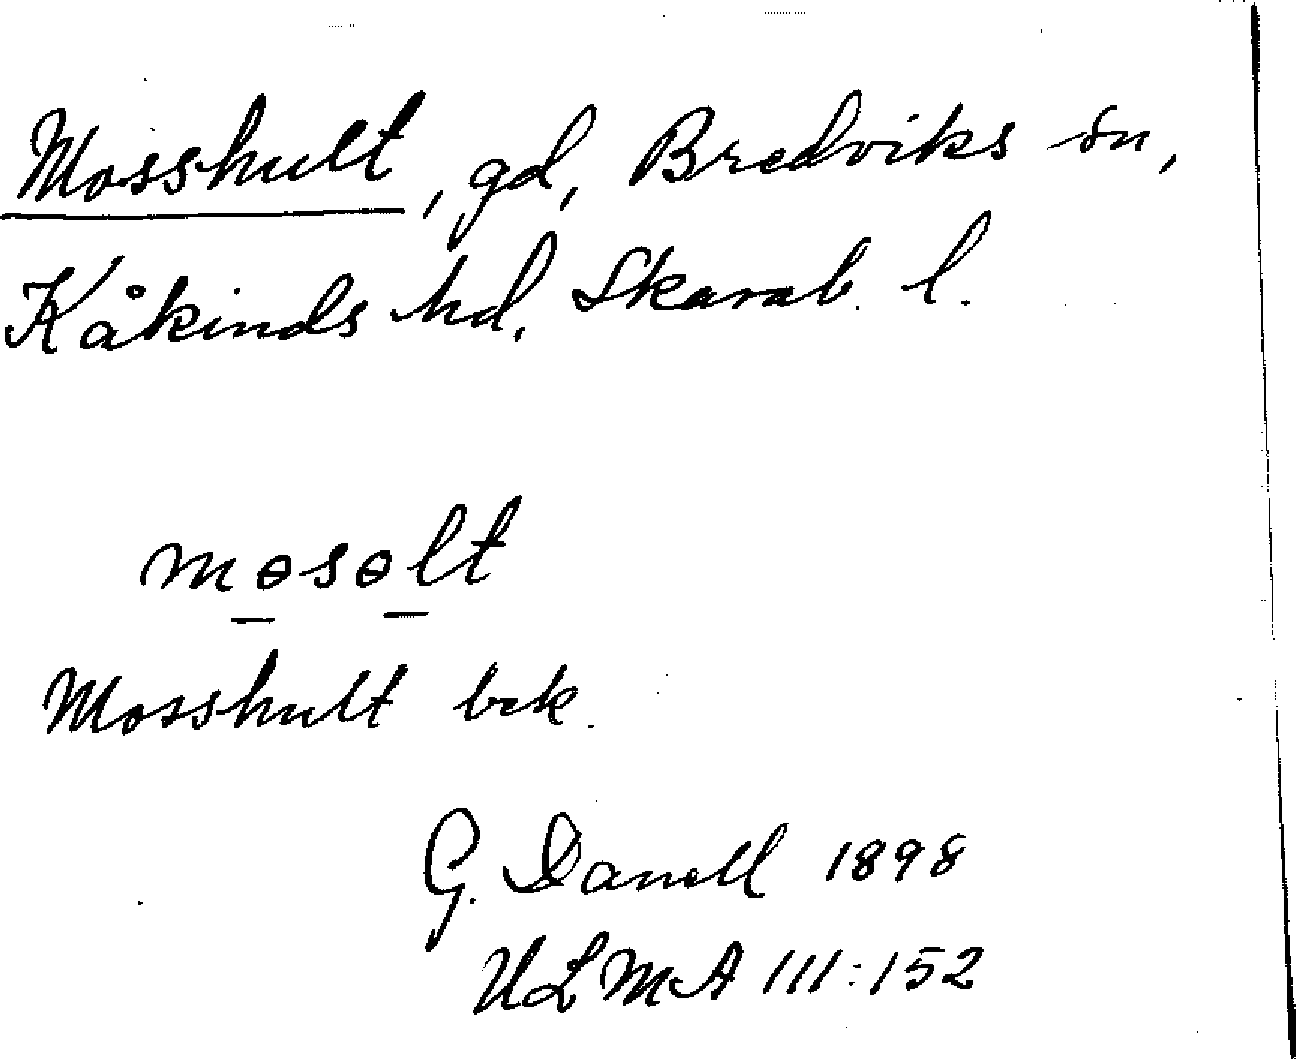 Mosshult, gd, Bredviks sn,
Kåkinds hd, Skarab. l.
mɵsɵlt
Mosshult bek.
G. Danell 1898
ULMA 111:152